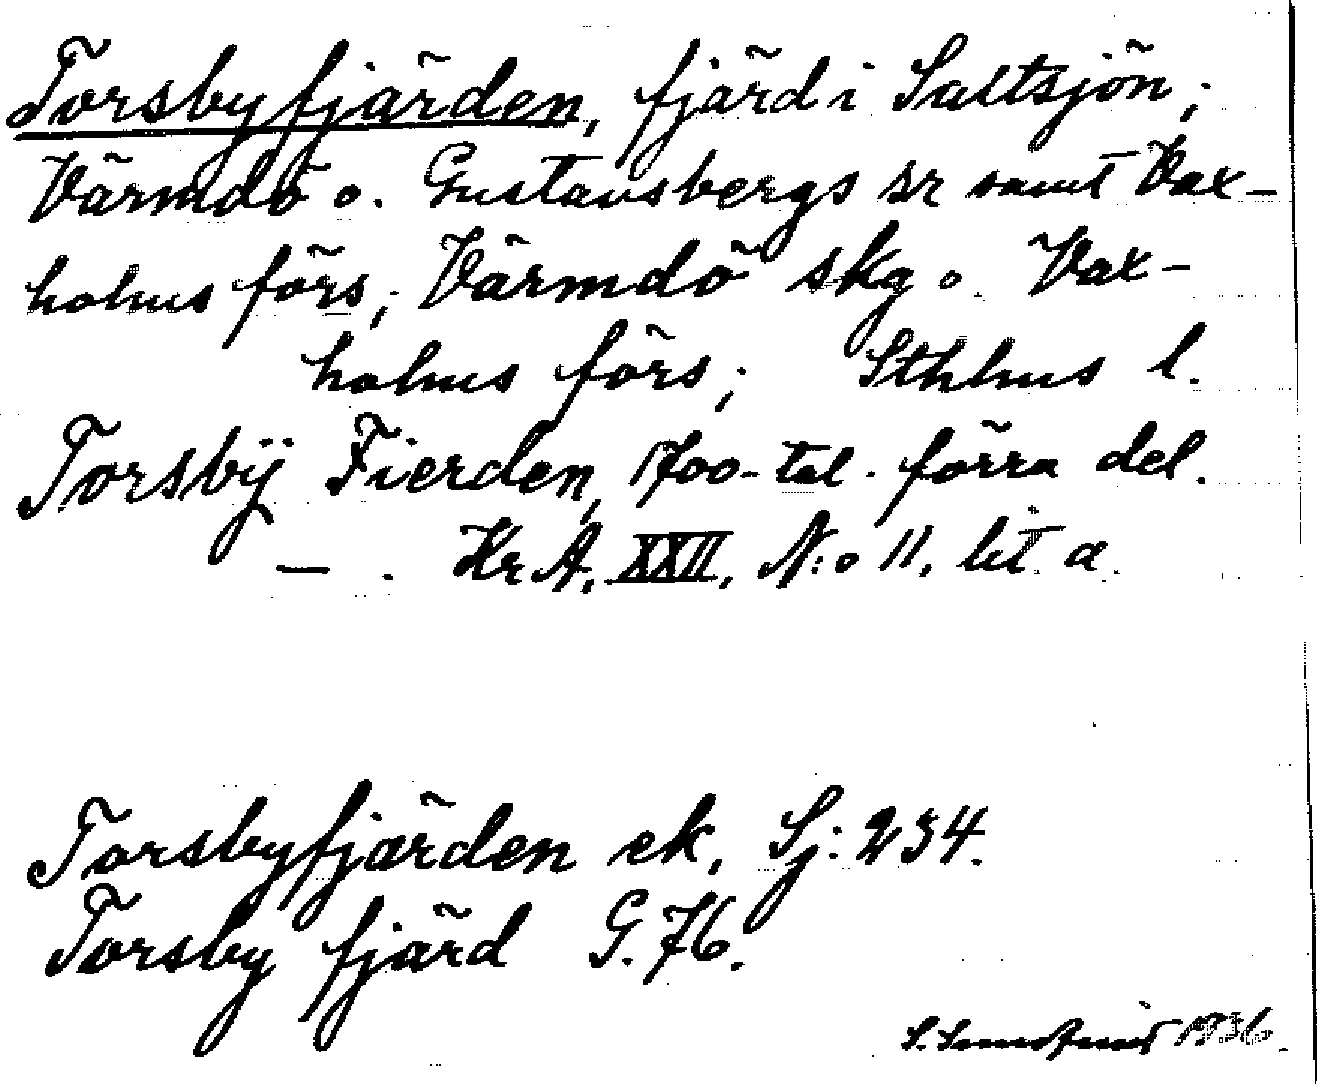 Torsbyfjärden, fjärd i Saltsjön;
Värmdö o. Gustavsbergs sr samt Vax-
holms förs; Värmdö skg o. Vax-
holms förs; Sthlms l.
Torsbÿ Fierden, 1700-tal. förra del.
— . Kr A, XXII, N:o 11. lit. a.
Torsbyfjärden ek, Sj: 234.
Torsby fjärd G. 76.
1936.